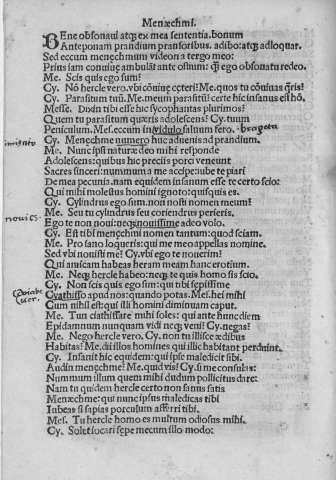 Menæchmi.
BEne obsonaui atqꝫ ex mea sententia. bonum
Anteponam prandium pransoribus. adibo: atqꝫ adloquar.
Sed eccum menęchmum video: a tergo meo:
Prius iam conuiuę ambulāt ante ostium: ꝙ ego obsonatu redeo.
Me. Scis quis ego sum?
Cy. Nō hercle vero. vbi cōuiuę cęteri: Me. quos tu cōuiuas q̄ris?
Cy. Parasitum tuū. Me. meum parasitū: certe hic insanus est hō.
Messe. Dixin tibi esse hic sycophantas plurimos?
Quem tu parasitum quæris adolescens: Cy. tuum
Peniculum. Mes. eccum in vidulo saluum fero.
Cy. Menęchme numero huc aduenis ad prandium.
Me. Nunc ipsi naturæ deo nubi responde
Adolescens: quibus hic preciis porci veneunt
Sacres sinceri: nummum a me accipe: iube te piari
De mea pecunia. nam equidem insanum esse te certo scio:
Qui mihi molestus homini ignoto: quisquis es.
Cy. Cylindrus ego sum. non nosti nomen meum?
Me. Seu tu cylindrus seu coriendrus perieris.
Ego te non noui: neqꝫ nouissime adeo volo.
Cy. Est tibi menęchmi nomen tantum: quod sciam.
Me. Pro sano loqueris: qui me meo appellas nomine.
Sed vbi nouisti me? Cy. vbi ego te nouerim?
Qui amicam habeas heram meam hanc erotium.
Me. Neqꝫ hercle habeo: neqꝫ te quis homo sis scio.
Cy. Non scis quis ego sim: qui tibi sępissime
Cyathisso apud nos: quando potas. Mes. hei mihi
Cum nihil est: qui illi homini diminuam caput.
Me. Tun ciathissare mihi soles: qui ante hunc diem
Epidamnum nunquam vidi neqꝫ veni? Cy. negas?
Me. Nego hercle vero. Cy. non tu in illisce ædibus
Habitas? Me. dii illos homines qui illic habitant perduint.
Cy. Insanit hic equidem: qui ipse maledicit sibi.
Audin menęchme? Me. quid vis? Cy. si me consulas:
Nummum illum quem mihi dudum pollicitus dare:
Nam tu quidem hercle certo non sanus satis
Menæchme: qui nunc ipsus maledicas tibi
Iubeas si sapias porculum afferri tibi.
Mes. Tu hercle homo es multum odiosus mihi.
Cy. Solet iocari sępe mecum illo modo: